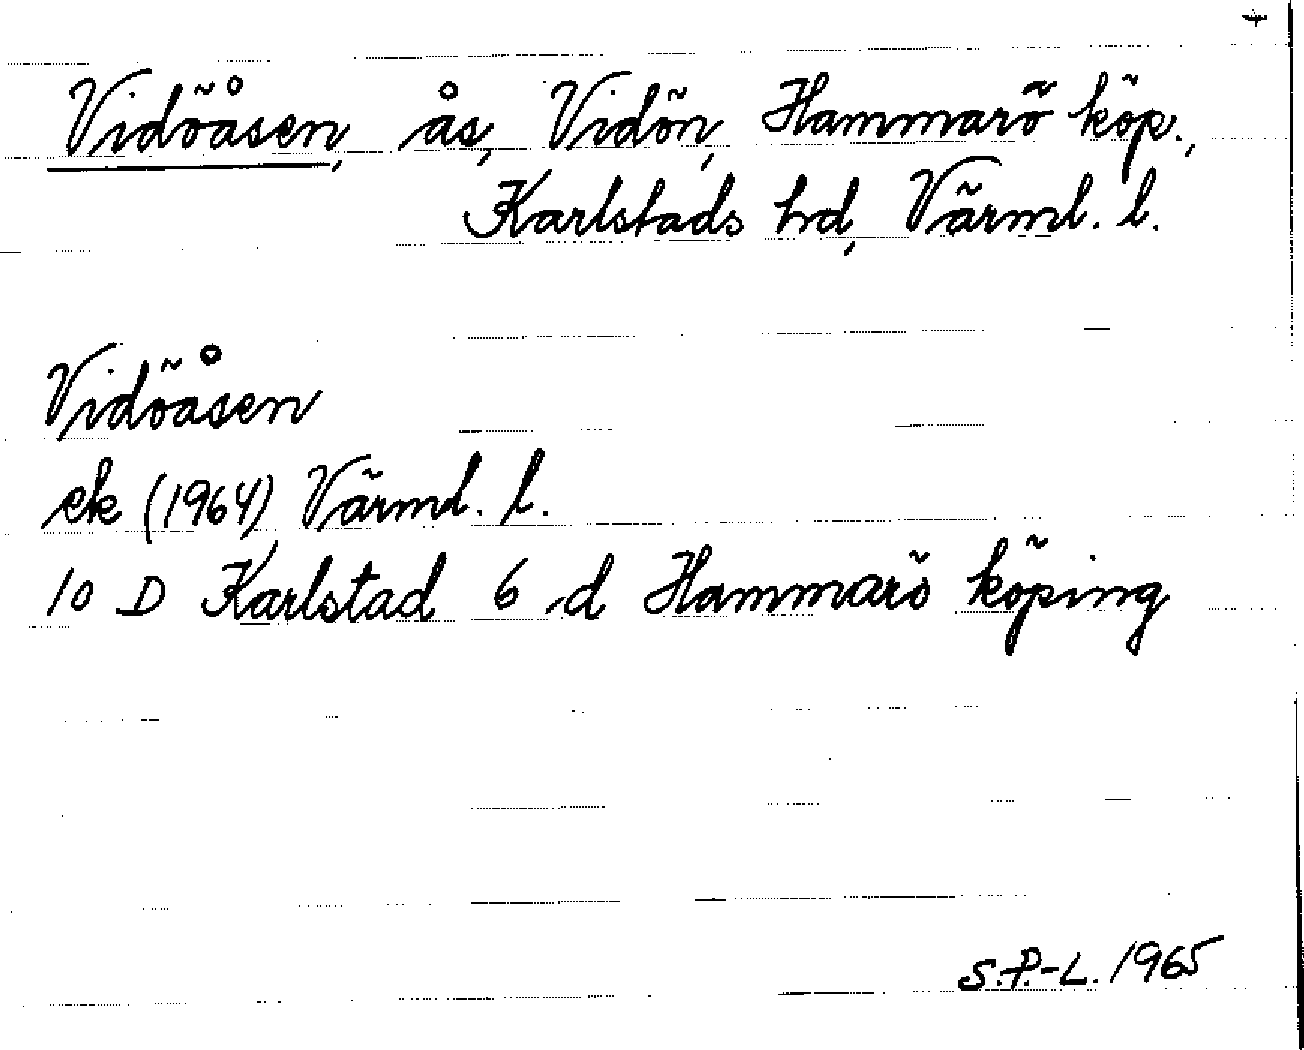 Vidöåsen, ås, Vidön, Hammarö köp.,
Karlstads hd, Värml. l.
Vidöåsen
ek (1964) Värml. l.
10 D Karlstad 6 d Hammarö köping
S.P.-L. 1965